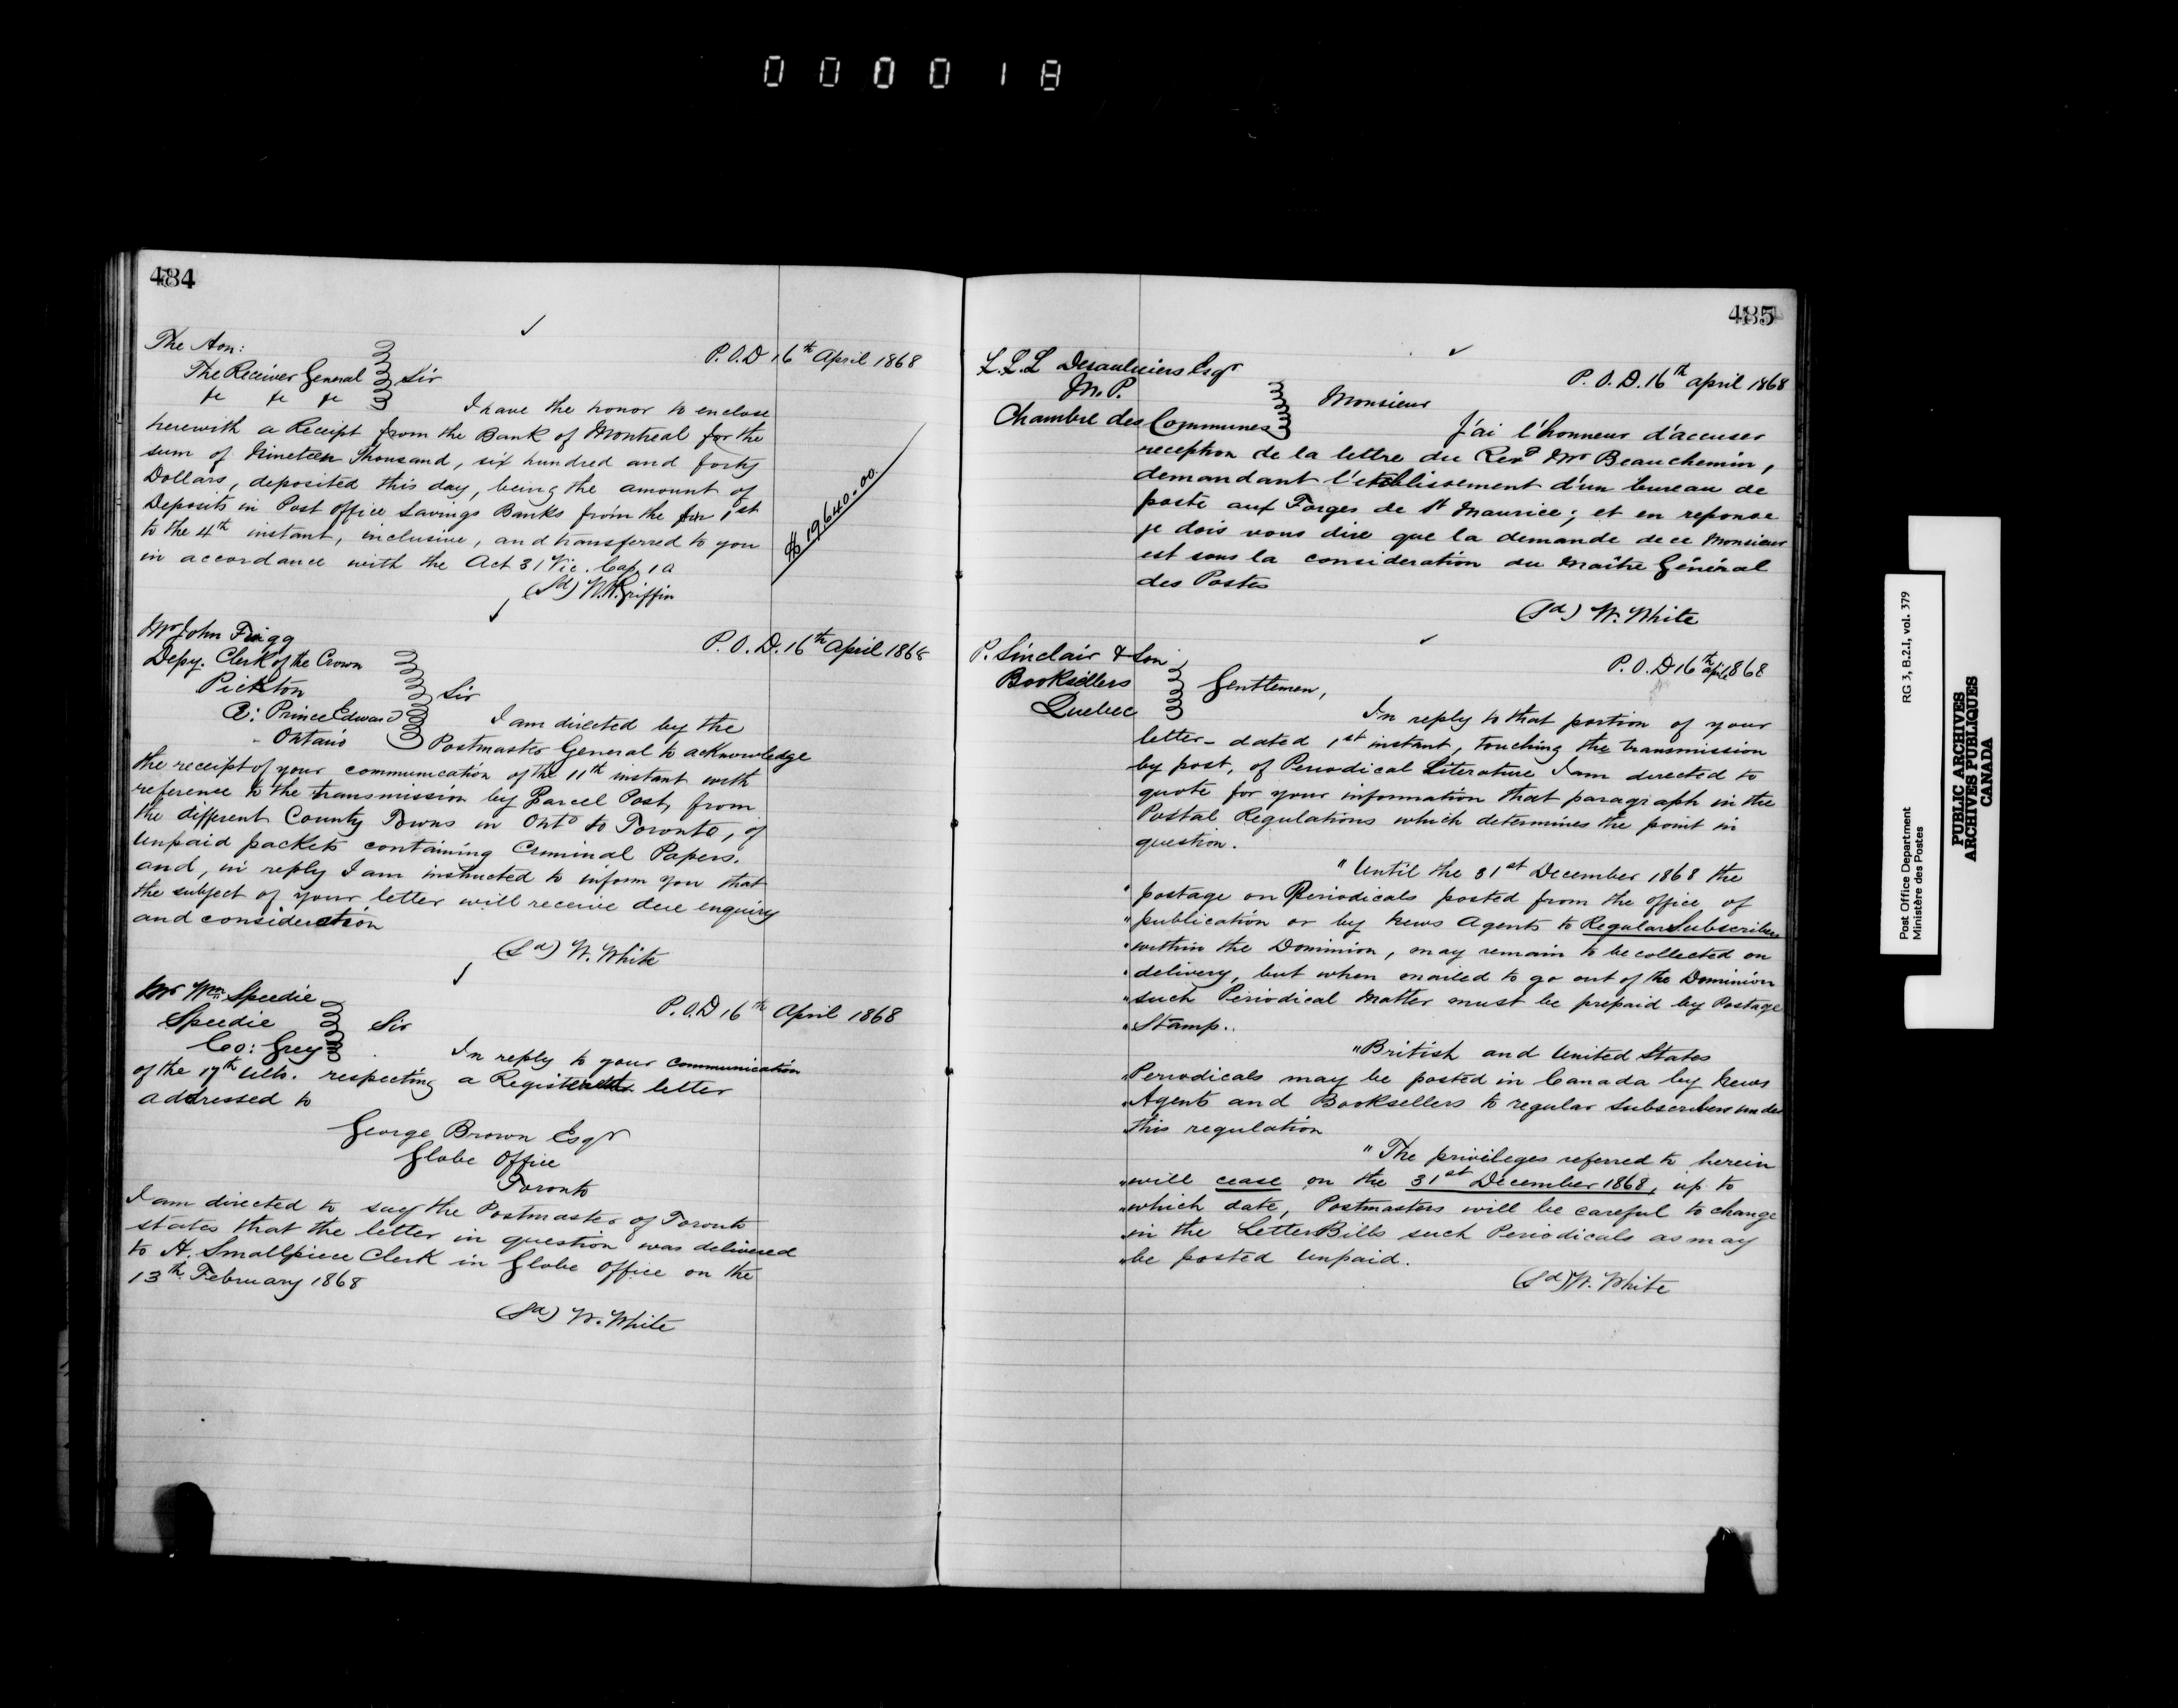 000018
484
The Hon:
The Receiver General
&c &c &c
Sir
P.O.D 16th April 1868
I have the honor to enclose
herewith a Receipt from the Bank of Montreal for the
sum of Nineteen Thousand, six hundred and forty
Dollars, deposited this day, being the amount of
Deposits in Post Office Savings Banks from the 1st
to the 4th instant, inclusive, and transferred to you
in accordance with the Act 31 Vic. Cap. 10
$19640.00
(Sd) W.H. Griffin
Mr John Twigg
Depy. Clerk of the Crown
Pickton
Co: Prince Edward
Ontario
P.O.D. 16th April 1868
Sir
I am directed by the
Postmaster General to acknowledge
the receipt of your communication of the 11th instant with
reference to the transmission by Parcel Post, from
the different County Towns in Onto to Toronto, of
unpaid packets containing Criminal Papers.
and, in reply I am instructed to inform you that
the subject of your letter will receive due enquiry
and consideration
(Sd) W. White
Mr Wm Speedie
Speedie
Co: Grey
Sir
P.O.D 16th April 1868
In reply to your communication
of the 17th ulto. respecting a Registered letter
addressed to
George Brown Esqr
Globe Office
Toronto
I am directed to say the Postmaster of Toronto
states that the letter in question was delivered
to H. Smallpiece Clerk in Globe Office on the
13th February 1868
(Sd) W. White
485
L.L.L Desaulniers Esqr
M.P.
Chambre des Communes
P.O.D. 16th april 1868
Monsieur
J'ai l'honneur d'accuser
reception de la lettre du Revd Mr Beauchemin,
demandant l'etablissement d'un bureau de
poste aux Forges de St Maurice; et en reponse
je dois vous dire que la demande de ce Monsieur
est sous la consideration du Maître Général
des Postes
(Sd) W. White
P. Sinclair & Son
Booksellers
Quebec
P.O.D 16th april 1868
Gentlemen,
In reply to that portion of your
letter- dated 1st instant, touching the transmission
by post, of Periodical Literature I am directed to
quote for your information that paragraph in the
Postal Regulations which determines the point in
question.
"Until the 31st December 1868 the
" postage on Periodicals posted from the office of
" publication or by News Agents to Regular Subscribers
" within the Dominion, may remain to be collected on
" delivery, but when mailed to go out of the Dominion
" such Periodical Matter must be prepaid by Postage
" Stamp.
"British and United States
"Periodicals may be posted in Canada by News
"Agents and Booksellers to regular subscribers under
"this regulation
"The privileges referred to herein
"will cease on the 31st December 1868, up to
"which date, Postmasters will be careful to change
"in the Letter Bills such Periodicals as may
"be posted unpaid.
(Sd) W. White
Post Office Department RG 3, B.2.I, vol. 379
Ministère des Postes
PUBLIC ARCHIVES
ARCHIVES PUBLIQUES
CANADA